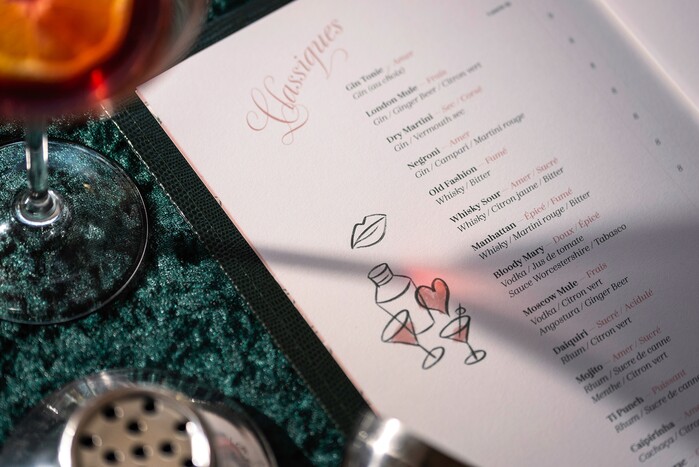 Classiques
Gin Tonic – Amer
Gin (au choix)
London Mule – Frais
Gin / Ginger Beer / Citron vert
Dry Martini – Sec / Corsé
Gin / Vermouth sec
Negroni – Amer
Gin / Campari / Martini rouge
Old Fashion – Fumé
Whisky / Bitter
Whisky Sour – Amer / Sucré
Whisky / Citron jaune / Bitter
Manhattan – Épicé / Fumé
Whisky / Martini rouge / Bitter
Bloody Mary – Doux / Épicé
Vodka / Jus de tomate
Sauce Worcestershire / Tabasco
Moscow Mule – Frais
Vodka / Citron vert
Angostura / Ginger Beer
Daiquiri – Sucré / Acidulé
Rhum / Citron vert
Mojito – Amer / Sucré
Rhum / Sucre de canne
Menthe / Citron vert
Ti Punch – Puissant
Rhum / Sucre de canne
Caipirinha
Cachaça / Citron